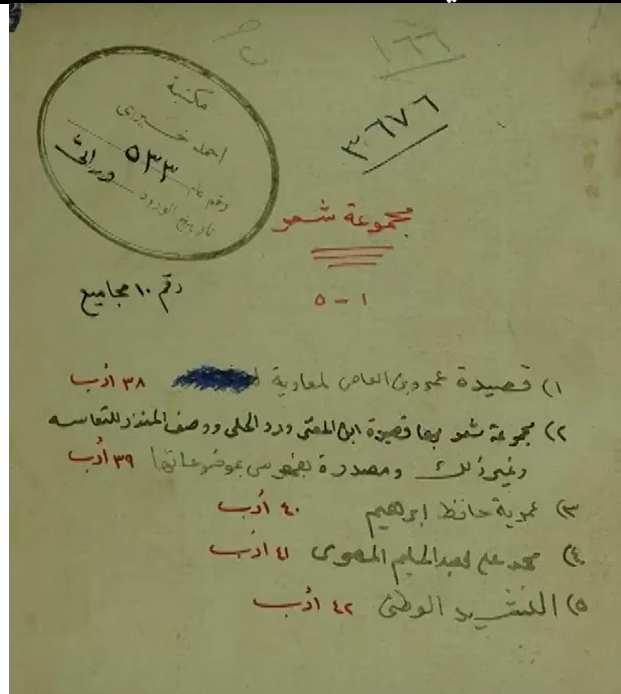 ١٦٦
٣٦٧٦
مكتبة
احمد خيرى
رقم عام ٥٣٣ وراثى
تاريخ الورود
مجموعة شعر
١ - ٥
رقم ١٠ مجاميع
١) قصيدة عمرو بن العاص لمعاوية ٣٨ أدب
٢) مجموعة شعر بها قصيدة ابن المعتز ورد الحلى ووصف
وغير ذلك ومصدرة بفهرس بموضوعاتها ٣٩ أدب
٣) عمرية حافظ ابرهيم ٤٠ أدب
٤) محمد على لعبد الحليم المصرى ٤١ أدب
٥) النشيد الوطنى ٤٢ أدب